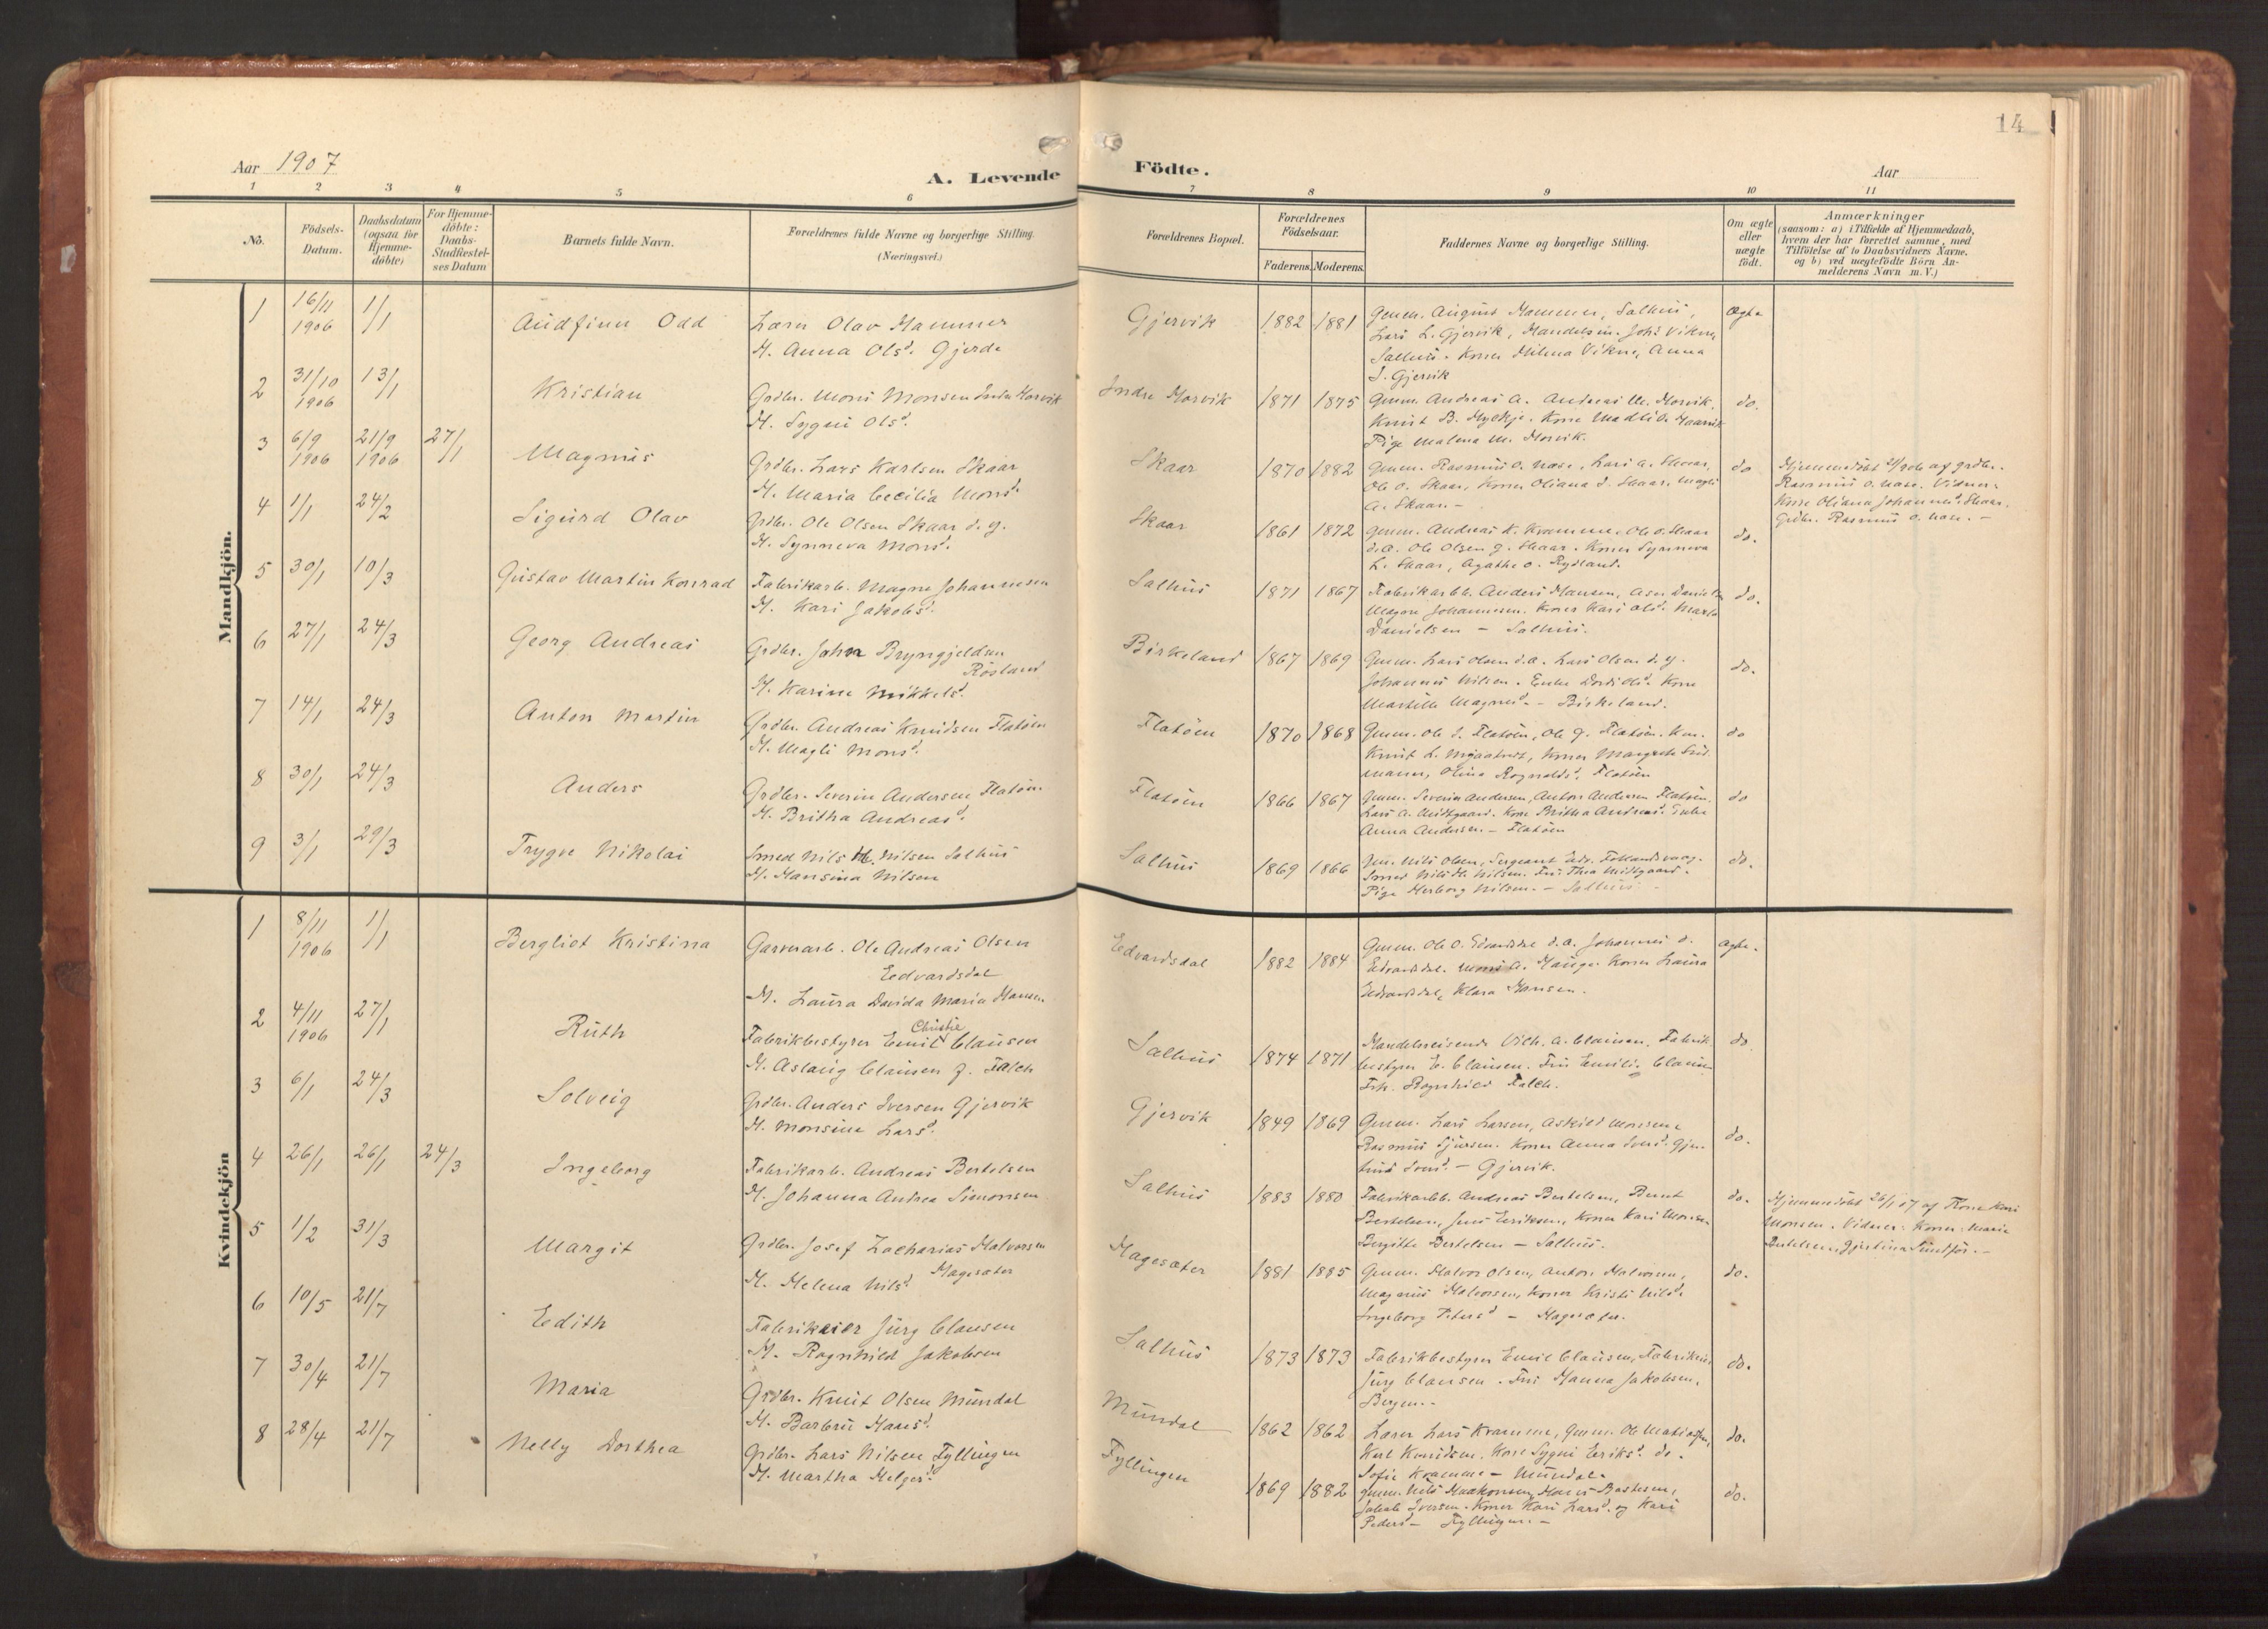 14
Aar 1907
A. Levende Födte.
Aar
1 2 3 4 5 6 7 8 9 10 11
No.
Födsels-Datum.
Daabsdatum (ogsaa for Hjemme-döbte)
For Hjemme-döbte: Daabs-Stadfæstel-ses Datum
Barnets fulde Navn.
Forældrenes fulde Navne og borgerlige Stilling.
(Næringsvei.)
Forældrenes Bopæl.
Forældrenes Födselsaar.
Faderens. Moderens.
Faddernes Navne og borgerlige Stilling.
Om ægte eller uægte födt.
Anmærkninger
(saasom: a) i Tilfælde af Hjemmedaab,
hvem der har forrettet samme, med
Tilföielse af to Daabsvidners Navne.
og b) ved uægtefödte Börn An-
melderens Navn m. V.)
Mandkjön.
1 16/11 1906 1/1 Audfinn Odd Lærer Olav Hammer Gjervik 1882 1881 Gmm. August Hammer, Salhus, Ægte
H. Anna Olsd. Gjerde Lars L. Gjervik, Handelsm. Johs Vikne,
Salhus. Koner Hilma Vikne, Anna
I. Gjervik
2 31/10 1906 13/1 Kristian Grdbr. Mons Monsen Indre Horvik Indre Horvik 1871 1875 Gmm. Andreas A. Andreas M. Horvik, do.
H. Sygni Olsd. Knut B. Myckje. Kone
Pige Malena M. Horvik.
3 6/9 1906 21/9 1906 27/1 Magnus Grdbr. Lars Karlsen Skaar Skaar 1870 1882 Gmm. Rasmus O. Nase, Lars A. Skaar, do Hjemmedöbt 21/9 06 af grdbr.
H. Maria Cecilia Monsd. Ole O. Skaar, Koner Oliana J. Skaar. Magli Rasmus O. Nase. Vidner:
A. Skaar.- Kone Oliana Johannesd. Skaar,
Grdbr. Rasmus O. Nase. -
4 1/1 24/2 Sigurd Olav Grdbr. Ole Olsen Skaar d. y. Skaar 1861 1872 Gmm. Andreas K. Kramme. Ole O. Skaar do.
H. Synneva Monsd. d.æ. Ole Olsen y. Skaar. Koner Synneva
L. Skaar, Agathe O. Rydland.
5 30/1 10/3 Gustav Martin Konrad Fabrikarb. Magne Johannesen Salhus 1871 1867 Fabrikarbb. Anders Hansen, Danielsen do.
H. Kari Jakobsd. Magne Johannesen. Koner Kari Olsd. Marta
Danielsen - Salhus.
6 27/1 24/3 Georg Andreas Grdbr. John Bryngjeldsen Birkeland 1867 1869 Gmm. Lars Olsen d.æ. Lars Olsen d. y. do.
Rösland Johannes Nilsen. Enke Dordi Olsd. Kone
H. Karine Mikkelsd. Magnesd. - Birkeland.
7 14/1 24/3 Anton Martin Grdbr. Andreas Knudsen Flatöen Flatöen 1870 1868 Gmm. Ole I. Flatöen, Ole J. Flatöen. do
H. Magli Monsd. Knut L. Koner Margrete
Olina Ragnaldsd. Flatöen
8 30/1 24/3 Anders Grdbr. Severin Andersen Flatöen. Flatöen 1866 1867 Gmm. Severin Andersen, Anton Andersen Flatöen, do
H. Britha Andreasd. Lars A. Midtgaard. Kone Britha Andreasd. Enke
Anna Andersen. - Flatöen
9 3/1 29/3 Trygve Nikolai Smed Nils M. Nilsen Salhus Salhus 1869 1866 Nils Olsen, Sergeant Follandsvaag. do.
H. Hansina Nilsen Smed Nils M. Nilsen. Fru Thea Midtgaard.
Pige Herborg Nilsen. - Salhus -
Kvindekjön
1 8/11 1906 1/1 Bergliot Kristina Garverarb. Ole Andreas Olsen Eedvardsdal 1882 1884 Gmm. Ole O. Edvardsdal d.æ. Johannes O. Ægte.
Eedvardsdal Edvardsdal. Mons A. Hauge. Koner Laura
H. Laura Davida Maria Hansen Edvardsdal, Klara Hansen.
2 4/11 1906 27/1 Ruth Fabrikbestyrer Emil Christie Clausen Salhus 1874 1871 Handelsreisende Vilh. A. Clausen. Fabrik do.
H. Aslaug Clausen f. Falch bestyrer E. Clausen. Fru Emilie Clausen
Frk. Ragnhild Falch.
3 6/1 24/3 Solveig Grdbr. Anders Iversen Gjervik Gjervik 1849 1869 Gmm. Lars Larsen, Askild Monsen, do.
H. Monsine Larsd. Rasmus Sjursen. Koner Anna Ivarsd. Gjer-
trud Iversd. - Gjervik.
4 26/1 26/1 24/3 Ingeborg Fabrikarb. Andreas Bertelsen Salhus 1883 1880 Fabrikarbb. Andreas Bertelsen, Bernt do. Hjemmedöbt 26/1 07 af Kone Kari
H. Johanna Andrea Simonsen Bertelsen, Jens Eriksen, Koner Kari Monsen Monsen. Vidner: Koner: Marie
Bergitte Bertelsen - Salhus. Bertelsen, Gjertina Sundför. -
5 1/2 31/3 Margit Grdbr. Josef Zacharias Halvorsen Hagesæter 1881 1885 Gmm. Halvor Olsen, Anton Halvorsen, do.
Hagesæter Magnus Halvorsen, Koner Kristi Nilsd.
H. Helena Nilsd. Ingeborg Petersd. - Hagesæter.
6 10/5 21/7 Eedith Fabrikeier Jürg Clausen Salhus 1873 1873 Fabrikbestyrer Emil Clausen, Fabrikeier do.
H. Ragnhild Jakobsen Jürg Clausen. Fru Hanna Jakobsen,
Bergen.-
7 30/4 21/7 Maria Grdbr. Knut Olsen Mundal Mundal 1862 1862 Lærer Lars Kramme, Gmm. Ole Matiassen, do.
H. Barbru Hansd. Karl Knudsen. Kone Sygni Eriksd. do.
Sofie Kramme - Mundal.
8 28/4 21/7 Nelly Dorthea Grdbr. Lars Nilsen Fyllingen Fyllingen 1869 1882 Gmm. Nils Haakonsen, Hans Bastesen, do.
H. Martha Helgesd. Jakob Iversen. Koner Kari Larsd. og Kari
Pedersd - Fyllingen. -